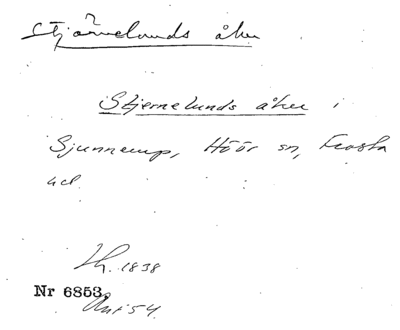 Stjärnelunds åker
Stjernelunds åker i
Sjunnerup, Höör sn, Frosta
hd.
Lh. 1838
Nr 6853